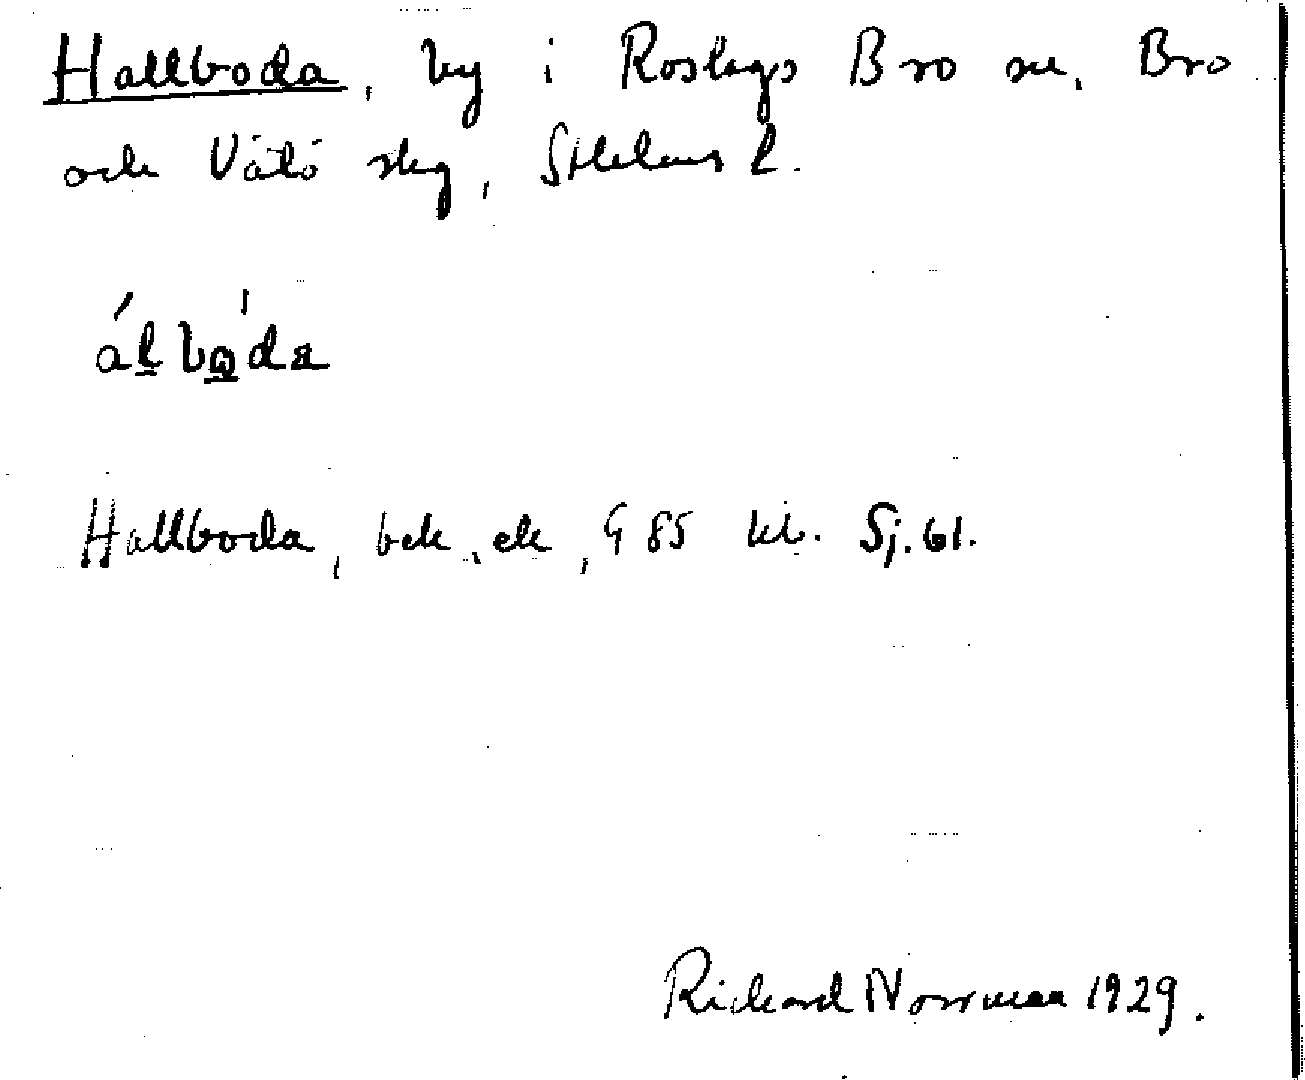 Hallboda, by i Roslags Bro sn, Bro
och Vätö skg, Sthlms l.
álbo̱da
Hallboda, bek, ek, G 85 kb. Sj. 61.
Rickard Norrman 1929.